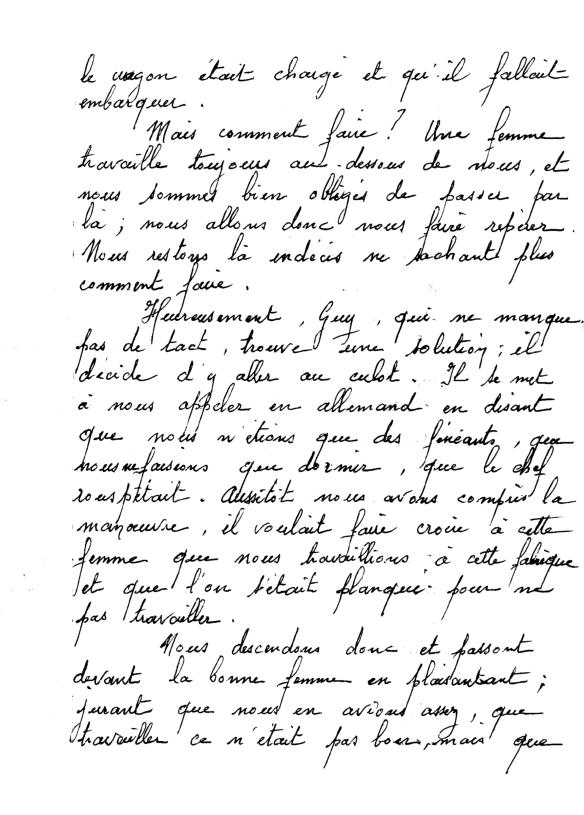 le wagon était chargé et qu'il fallait
embarquer.
Mais comment faire ? Une femme
travaille toujours au-dessous de nous, et
nous sommes bien obligés de passer par
là ; nous allons donc nous faire repérer.
Nous restons là indécis ne sachant plus
comment faire.
Heureusement, Guy, qui ne manque
pas de tact, trouve une solution ; il
décide d'y aller au culot. Il se met
à nous appeler en allemand en disant
que nous n'étions que des fénéants, que
nous ne faisions que dormir, que le chef
rouspétait. Aussitôt nous avons compris la
manœuvre, il voulait faire croire à cette
femme que nous travaillions à cette fabrique
et que l'on s'était planqué pour ne
pas travailler.
Nous descendons donc et passont
devant la bonne femme en plaisantant ;
jurant que nous en avions assez, que
travailler ce n'était pas bon, mais que